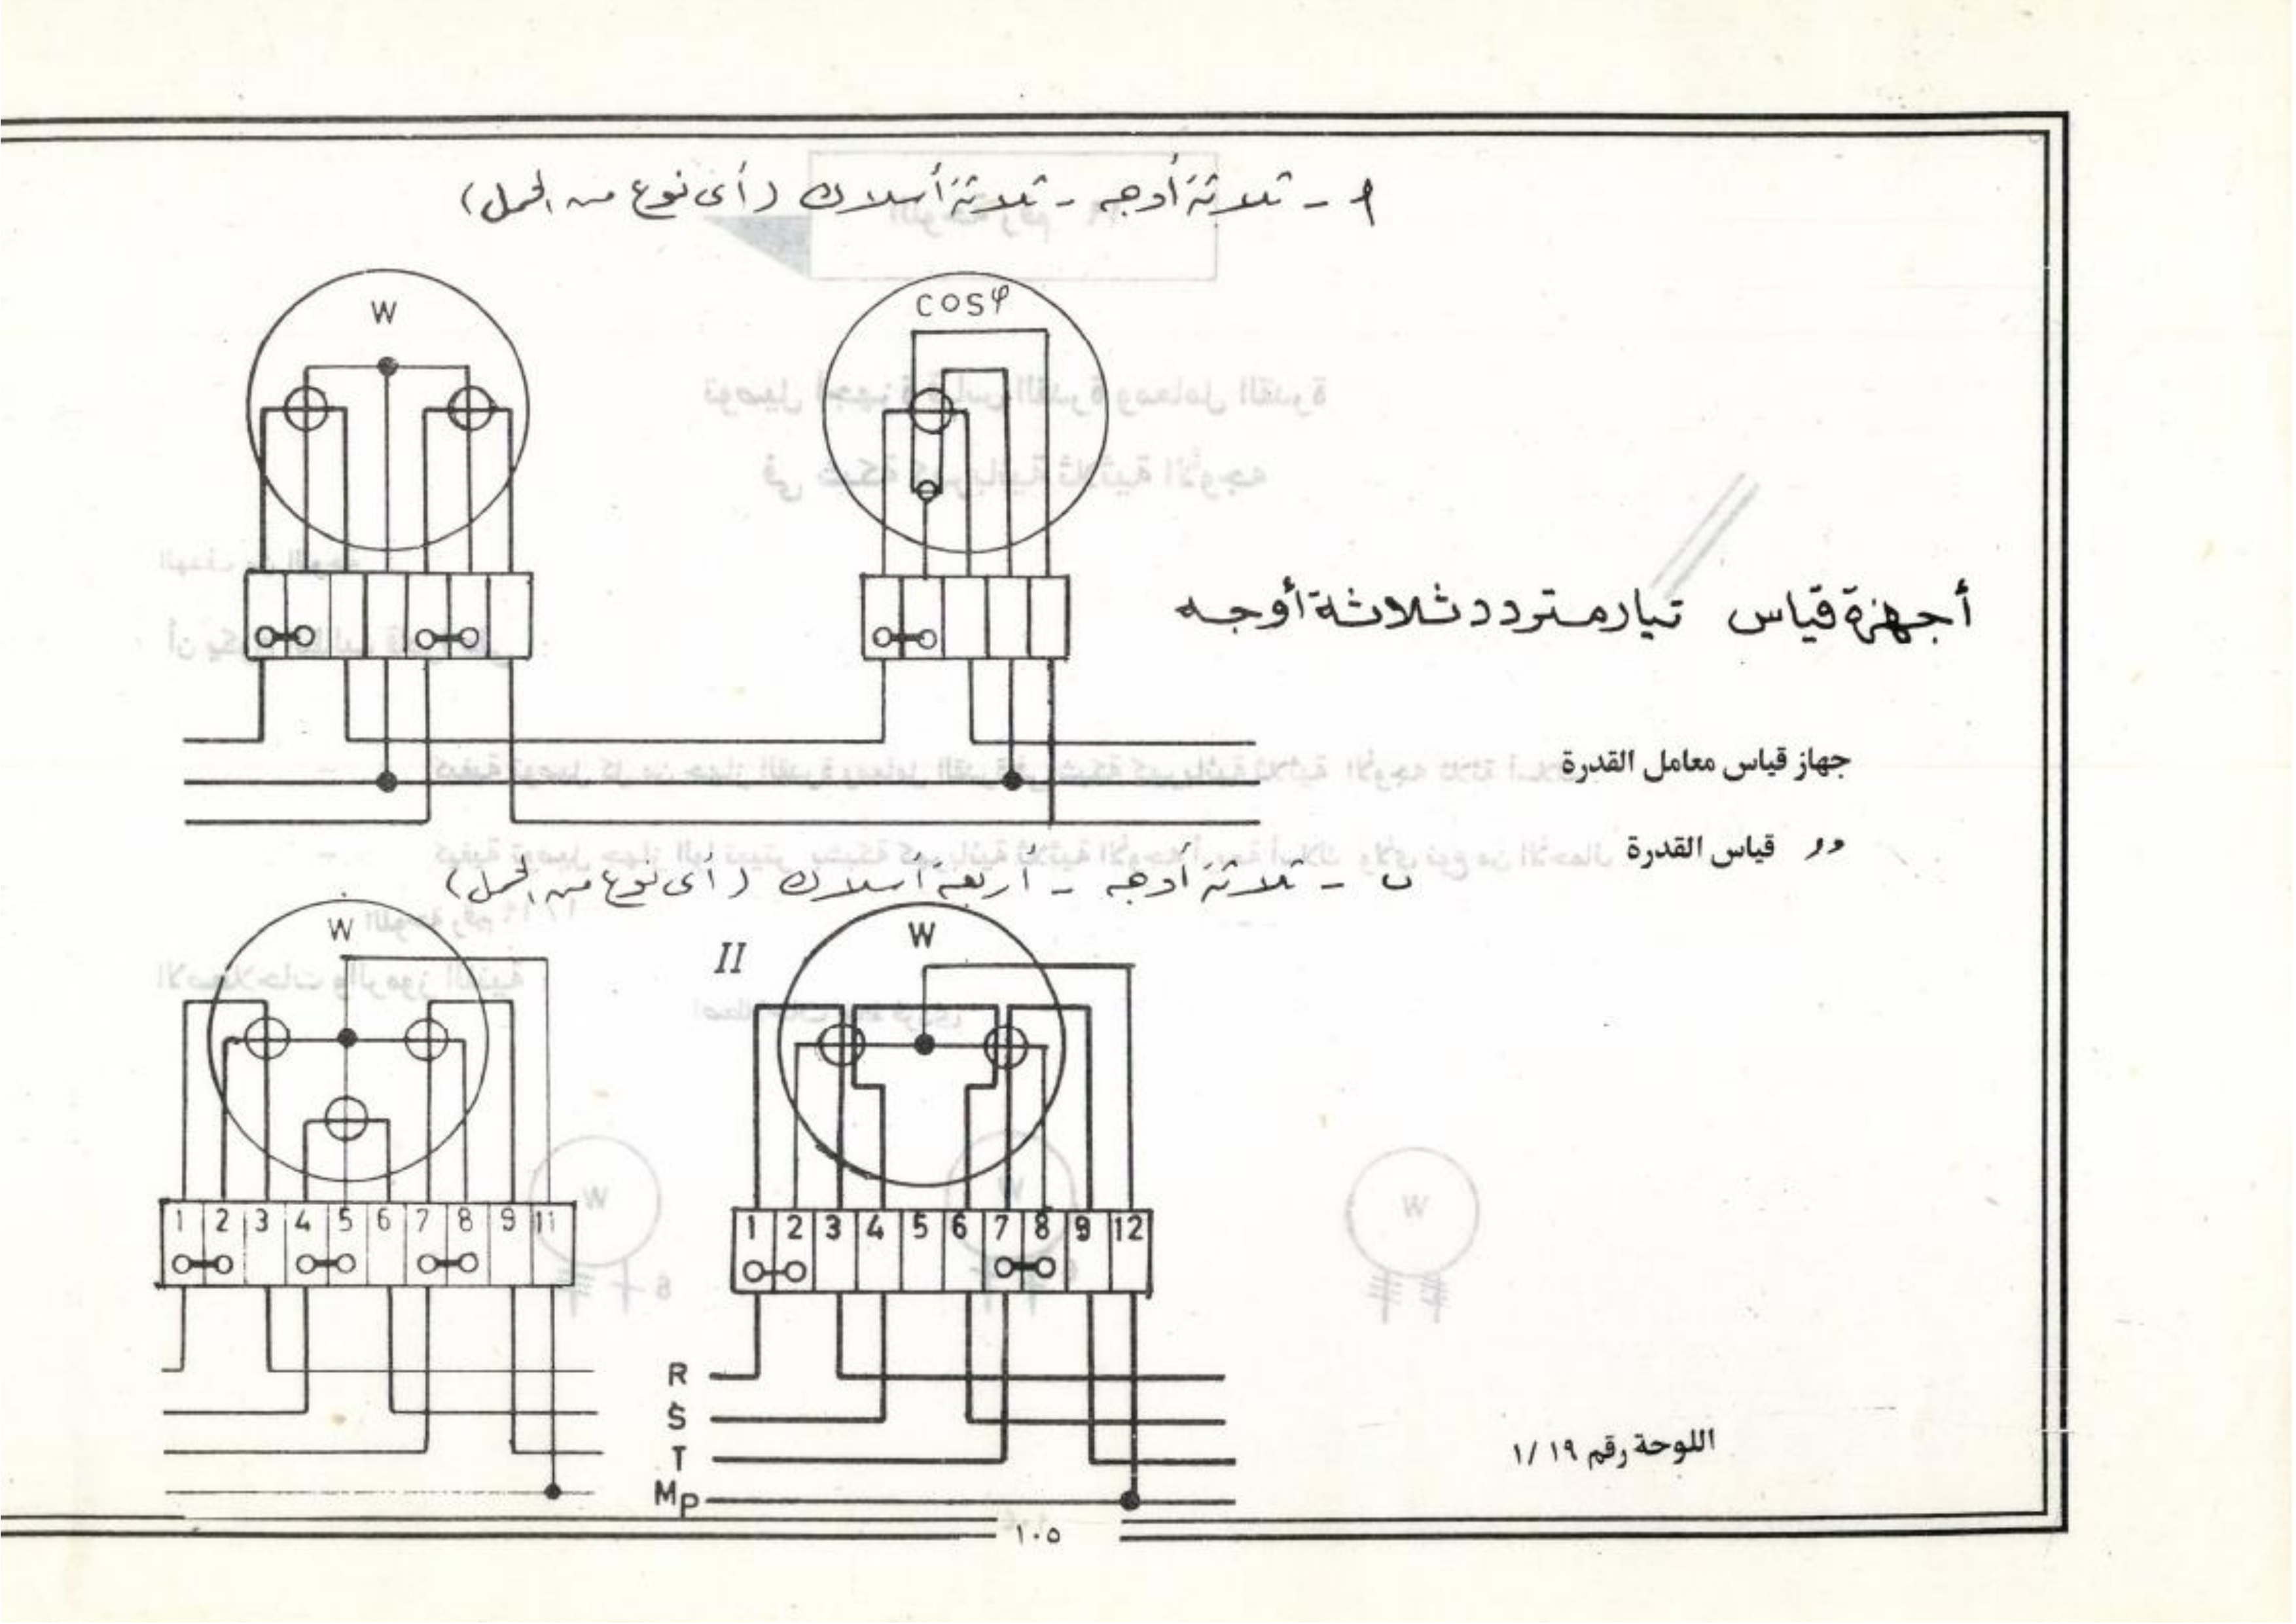 أ - ثلاثة أوجه - ثلاثة أسلاك (أى نوع من الحمل)
W
cosφ
أجهزة قياس تيار متردد ثلاثة أوجه
جهاز قياس معامل القدرة
〃 قياس القدرة
ب - ثلاثة أوجه - أربعة أسلاك (أى نوع من الحمل)
W
II
W
1 2 3 4 5 6 7 8 9 11
1 2 3 4 5 6 7 8 9 12
R
S
T
Mp
اللوحة رقم ١٩ /١
١٠٥